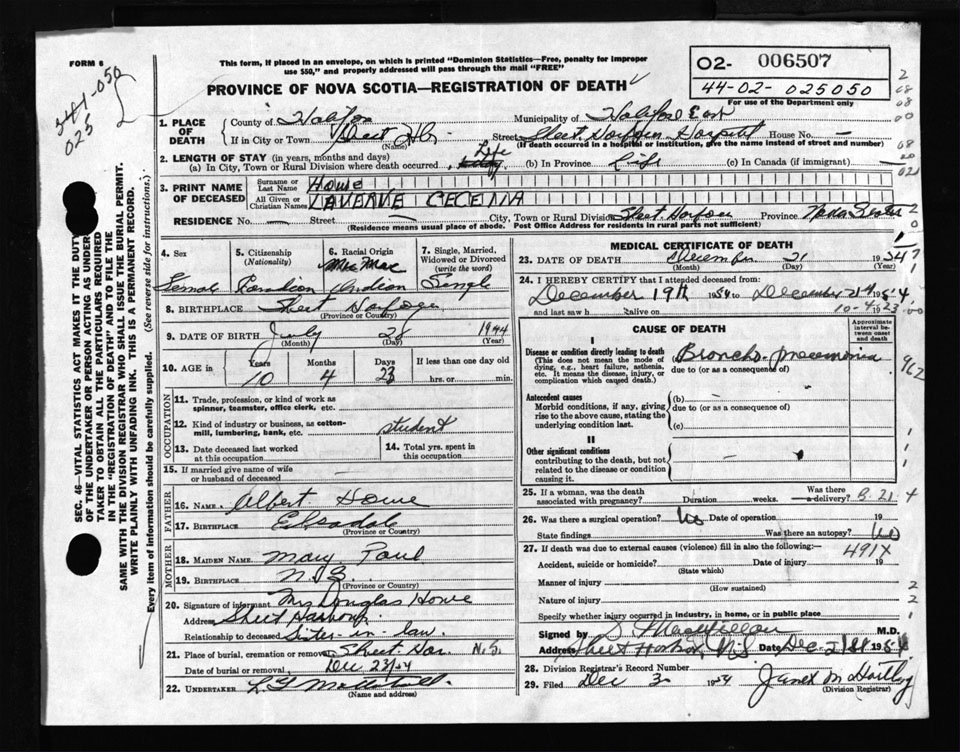 FORM 6
This form, if placed in an envelope, on which is printed "Dominion Statistics—Free, penalty for improper
use $50," and properly addressed will pass through the mail "FREE"
PROVINCE OF NOVA SCOTIA—REGISTRATION OF DEATH
O2- 006507
44-02- 025050
For use of the Department only
341-050
025
SEC. 46—VITAL STATISTICS ACT MAKES IT THE DUTY
OF THE UNDERTAKER OR PERSON ACTING AS UNDERTAKER TO OBTAIN ALL THE PARTICULARS REQUIRED
IN THE "REGISTRATION OF DEATH" AND TO FILE THE
SAME WITH THE DIVISION REGISTRAR WHO SHALL ISSUE THE BURIAL PERMIT.
WRITE PLAINLY WITH UNFADING INK. THIS IS A PERMANENT RECORD.
Every item of information should be carefully supplied. (See reverse side for instructions.)
1. PLACE OF DEATH County of Halifax Municipality of Halifax East
If in City or Town Sheet Hbr (Name) Street Sheet Harbour Hospital House No. —
(If death occurred in a hospital or institution, give the name instead of street and number)
2. LENGTH OF STAY (in years, months and days)
(a) In City, Town or Rural Division where death occurred Life (b) In Province Life (c) In Canada (if immigrant) —
3. PRINT NAME OF DECEASED Surname or Last Name Howe
All Given or Christian Names LAVERNE CECELIA
RESIDENCE No. — Street — City, Town or Rural Division Sheet Harbour Province Nova Scotia
(Residence means usual place of abode. Post Office Address for residents in rural parts not sufficient)
4. Sex Female
5. Citizenship (Nationality) Canadian
6. Racial Origin Mic Mac Indian
7. Single, Married, Widowed or Divorced (write the word) Single
8. BIRTHPLACE Sheet Harbour
(Province or Country)
9. DATE OF BIRTH July 28 1944
(Month) (Day) (Year)
10. AGE in Years 10 Months 4 Days 23 If less than one day old hrs. or min.
OCCUPATION
11. Trade, profession, or kind of work as
spinner, teamster, office clerk, etc.
12. Kind of industry or business, as cotton-
mill, lumbering, bank, etc. student
13. Date deceased last worked
at this occupation
14. Total yrs. spent in
this occupation
15. If married give name of wife
or husband of deceased
FATHER
16. NAME Albert Howe
17. BIRTHPLACE Elsadale
(Province or Country)
MOTHER
18. MAIDEN NAME Mary Paul
19. BIRTHPLACE N.S.
(Province or Country)
20. Signature of informant Mrs Douglas Howe
Address Sheet Harbour
Relationship to deceased Sister-in-law.
21. Place of burial, cremation or removal Sheet Har. N.S.
Date of burial or removal Dec 23/54
22. UNDERTAKER
(Name and address)
MEDICAL CERTIFICATE OF DEATH
23. DATE OF DEATH December 21 1954
(Month) (Day) (Year)
24. I HEREBY CERTIFY that I attended deceased from
December 19th 1954 to December 21st 1954
and last saw h alive on 19
CAUSE OF DEATH
Approximate interval between onset and death
I
Disease or condition directly leading to death
(This does not mean the mode of dying, e.g., heart failure, asthenia, etc. It means the disease, injury, or complication which caused death.)
Broncho-pneumonia
due to (or as a consequence of)
Antecedent causes
Morbid conditions, if any, giving rise to the above cause, stating the underlying condition last.
(b)
due to (or as a consequence of)
(c)
II
Other significant conditions
contributing to the death, but not related to the disease or condition causing it.
25. If a woman, was the death
associated with pregnancy? Duration weeks. Was there a delivery?
26. Was there a surgical operation? No Date of operation 19
State findings Was there an autopsy? No
27. If death was due to external causes (violence) fill in also the following:— 491X
Accident, suicide or homicide? Date of injury 19
(State which)
Manner of injury
(How sustained)
Nature of injury
Specify whether injury occurred in industry, in home, or in public place
Signed by M.D.
Address Sheet Harbour, N.S. Date Dec 21st 1954
28. Division Registrar's Record Number
29. Filed Dec 3 1954 Janet M Hartling
(Division Registrar)